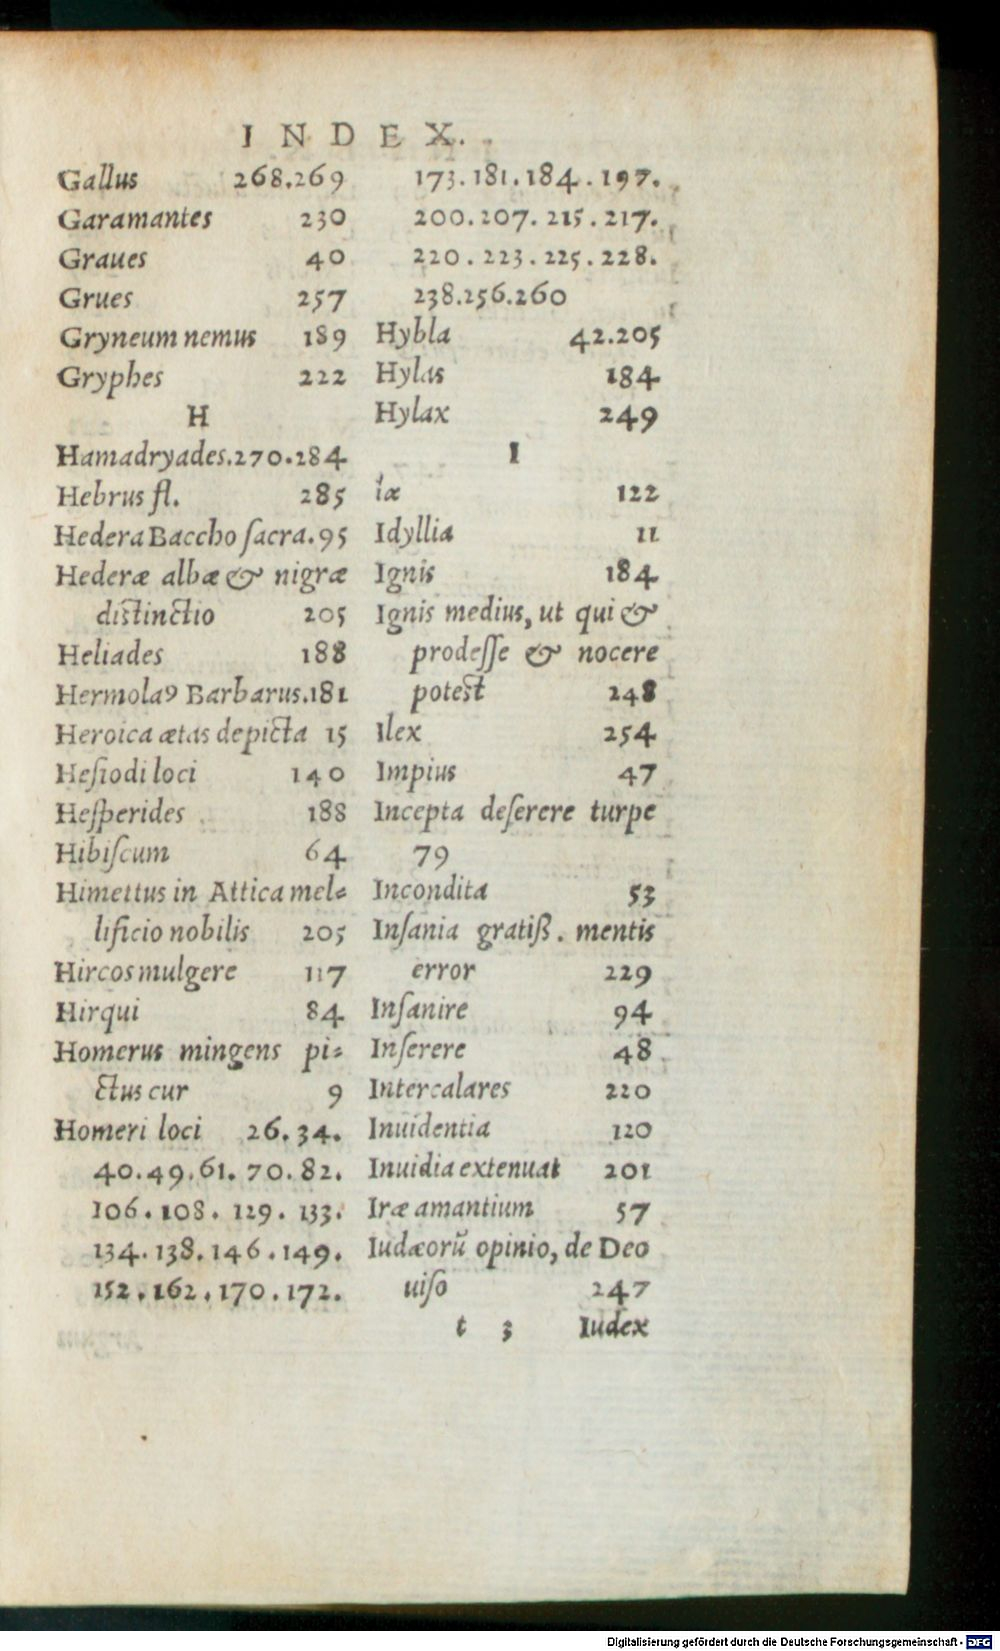 INDEX.
Gallus 268.269
Garamantes 230
Graues 40
Grues 257
Gryneum nemus 189
Gryphes 222
H
Hamadryades.270.284
Hebrus fl. 285
Hedera Baccho ſacra.95
Hederæ albæ & nigræ
distinctio 205
Heliades 188
Hermolaꝰ Barbarus.181
Heroica ætas depicta 15
Heſiodi loci 140
Heſperides 188
Hibiſcum 64
Himettus in Attica mel-
lificio nobilis 205
Hircos mulgere 117
Hirqui 84
Homerus mingens pi-
ctus cur 9
Homeri loci 26.34.
40.49.61.70.82.
106.108.129.133.
134.138.146.149.
152.162.170.172.
173.181.184.197.
200.207.215.217.
220.223.225.228.
238.256.260
Hybla 42.205
Hylas 184
Hylax 249
I
iæ 122
Idyllia 11
Ignis 184
Ignis medius, ut qui &
prodeſſe & nocere
potest 248
Ilex 254
Impius 47
Incepta deſerere turpe
79
Incondita 53
Inſania gratiß. mentis
error 229
Inſanire 94
Inſerere 48
Intercalares 220
Inuidentia 120
Inuidia extenuat 201
Iræ amantium 57
Iudæorũ opinio, de Deo
uiſo 247
t 3 Iudex
Digitalisierung gefördert durch die Deutsche Forschungsgemeinschaft - DFG